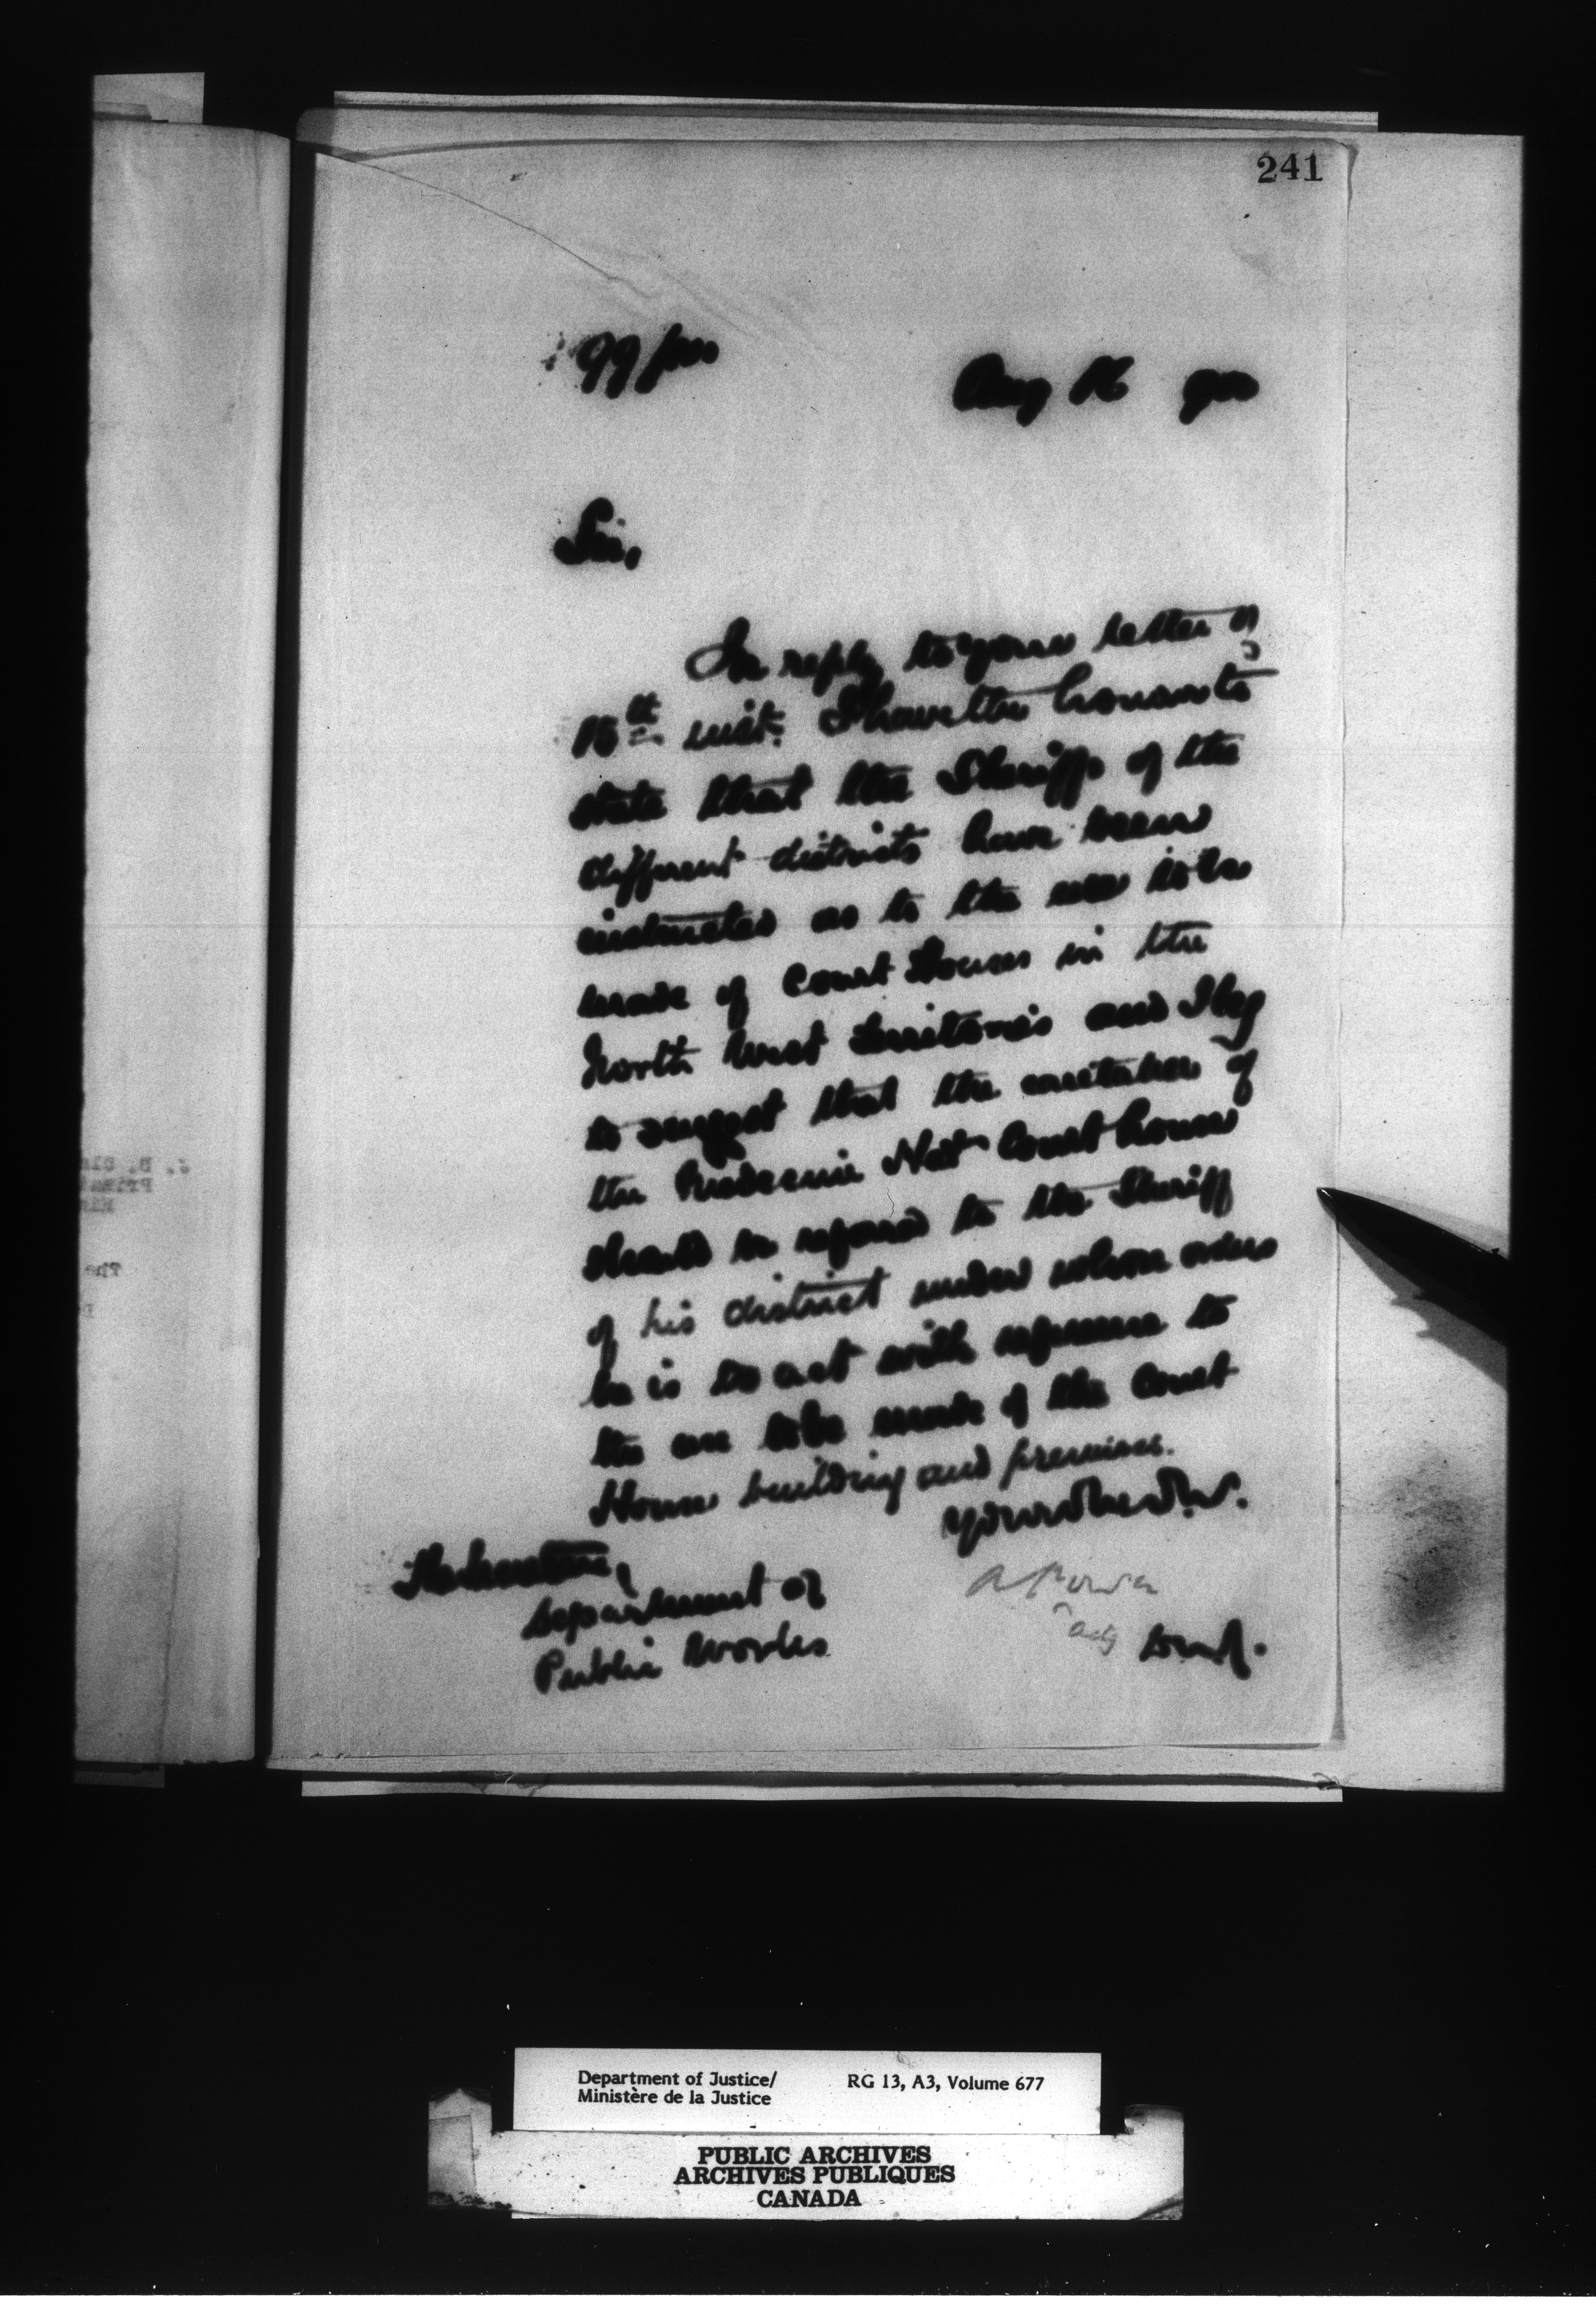 241
99/00
Aug 16 900
Sir,
In reply to your letter of
15th inst. I have the honour to
state that the Sheriffs of the
different districts have been
instructed as to the use to be
made of Court Houses in the
North West Territories and I beg
to suggest that the caretaker of
the Medecine Hat Court house
should be referred to the Sheriff
of his district under whose orders
he is to act with reference to
the use to be made of the Court
House building and premises.
The Secretary,
Department of
Public Works
A Power
actg D.M.J.
Department of Justice/
Ministère de la Justice
RG 13, A3, Volume 677
PUBLIC ARCHIVES
ARCHIVES PUBLIQUES
CANADA